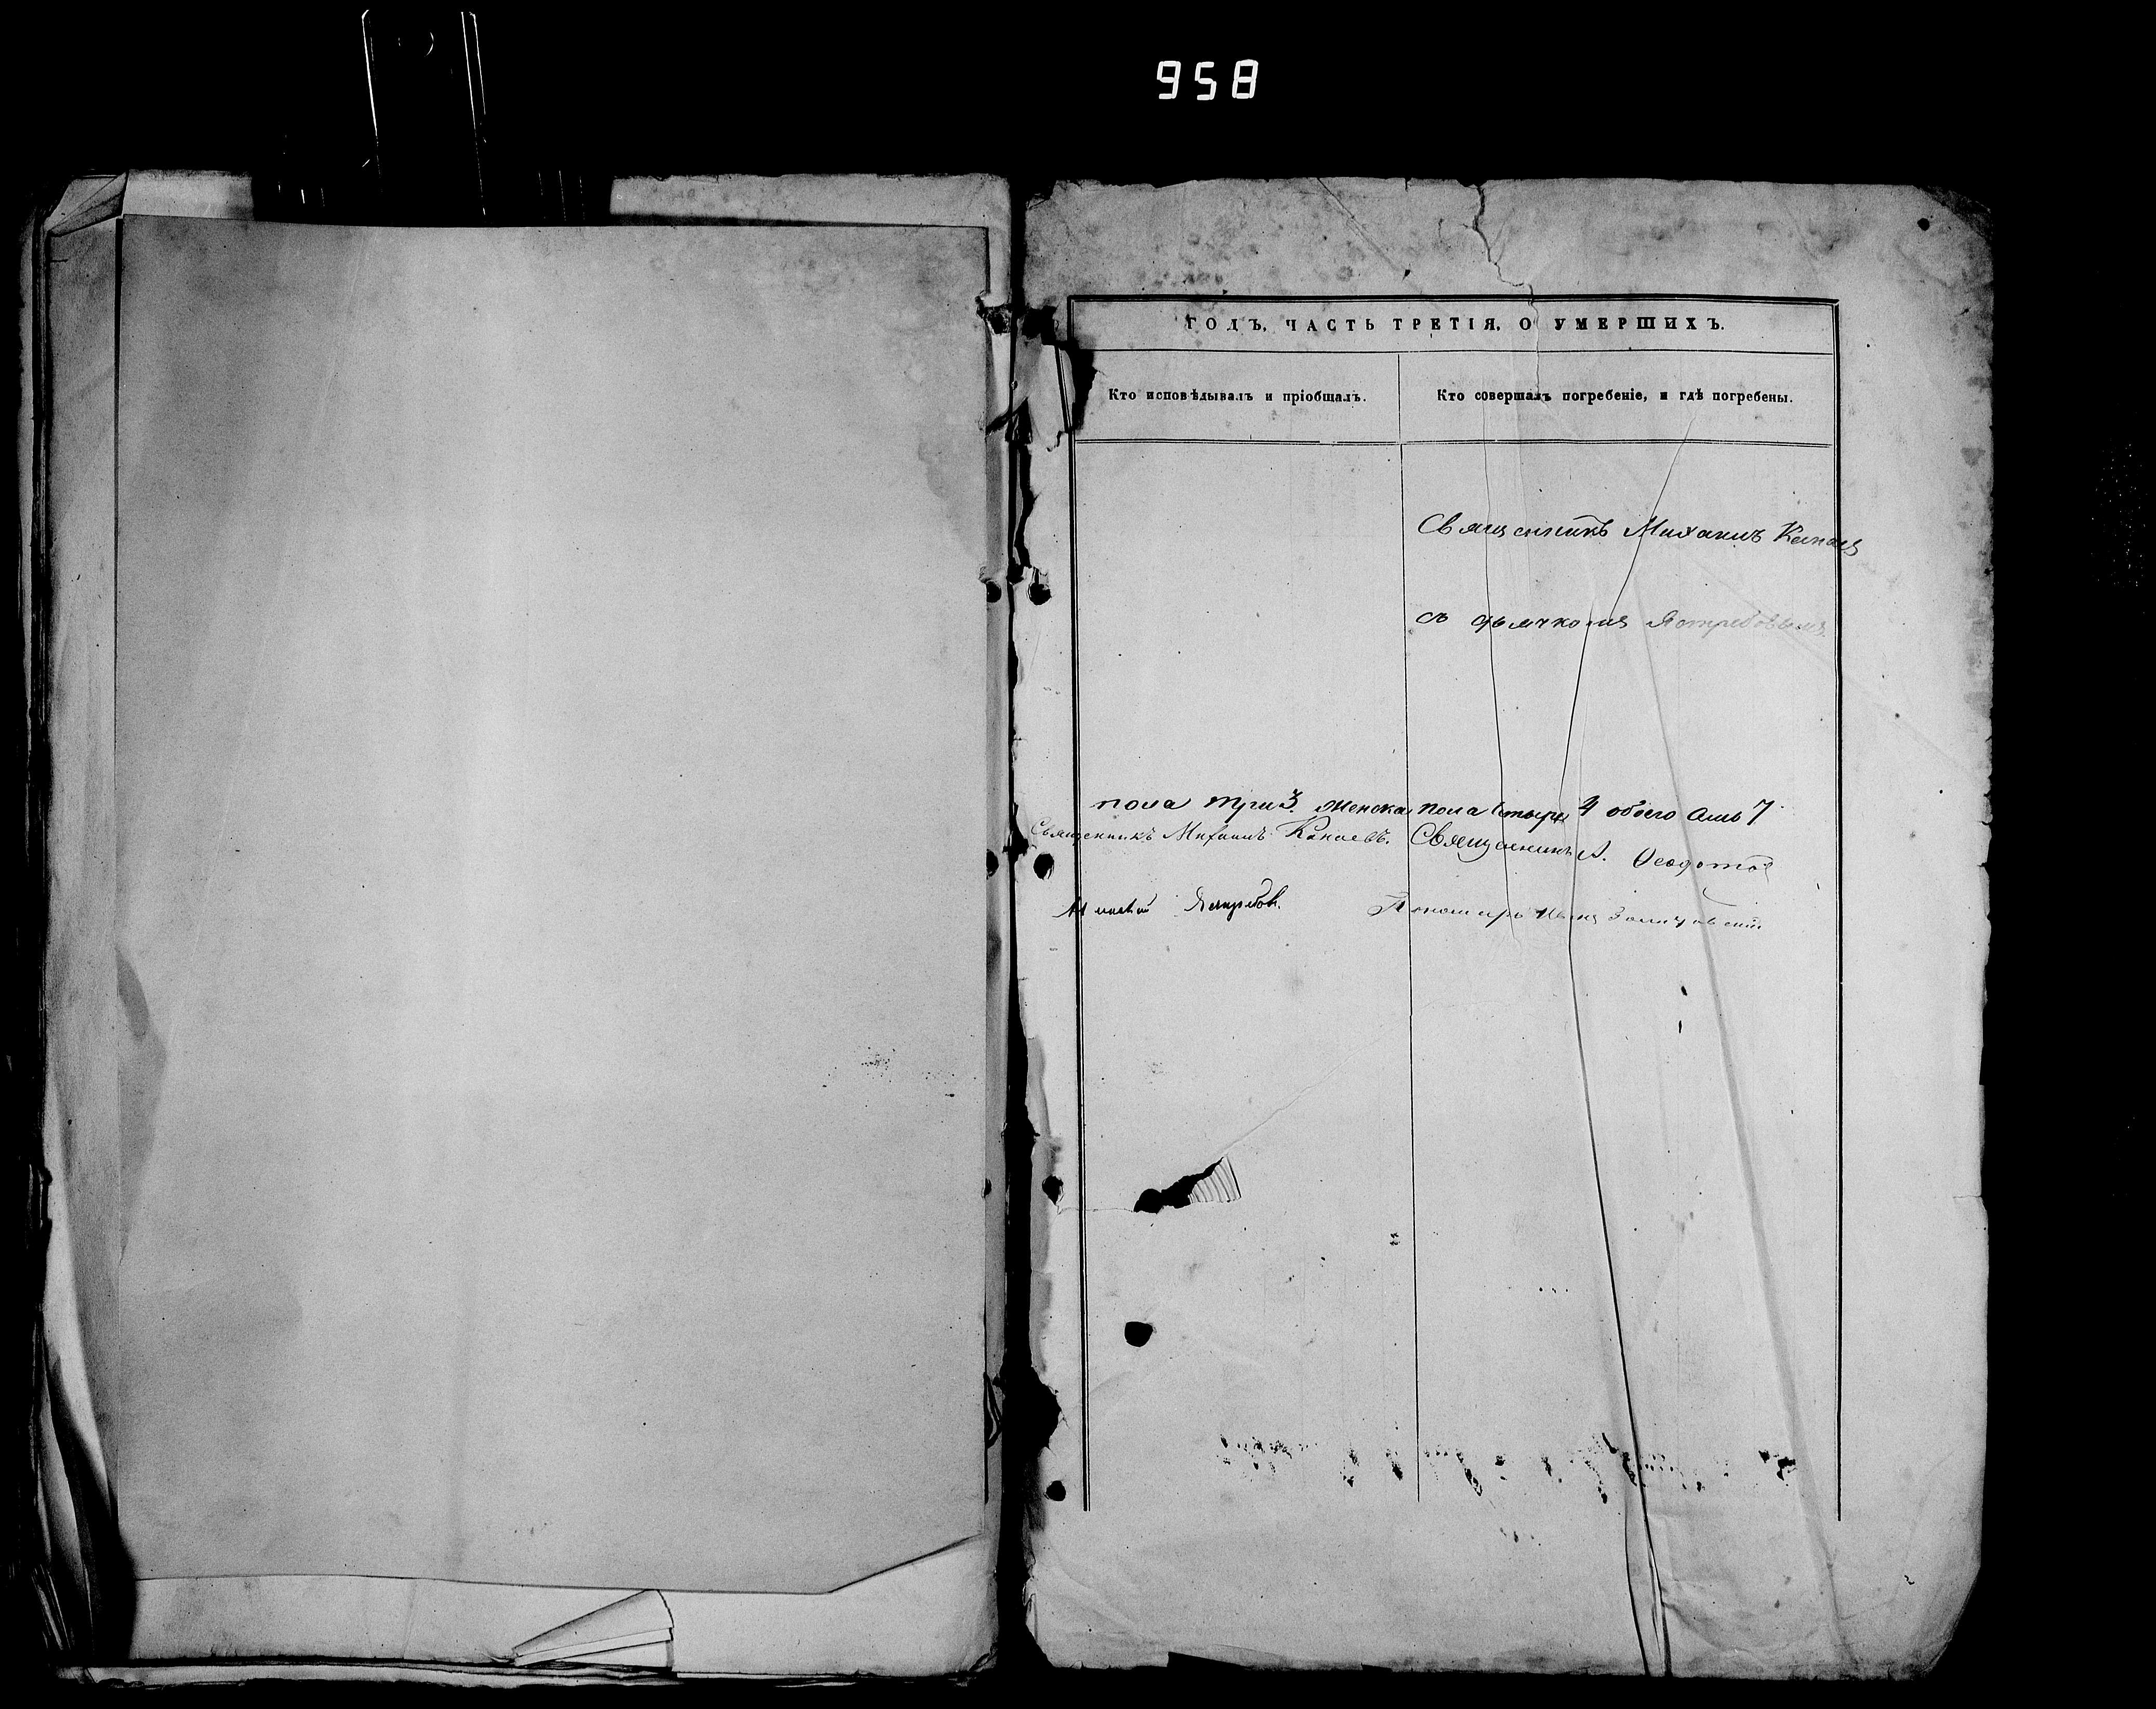 958
ГОДЪ, ЧАСТЬ ТРЕТІЯ, О УМЕРШИХЪ.
Кто исповѣдывалъ и пріобщалъ.
Кто совершалъ погребеніе, и гдѣ погребены.
Священникъ Михаилъ Канаевъ
съ дьячкомъ Ястребовымъ
пола три 3. женска пола четыре 4 обоего 7
Священникъ Михаилъ Канаевъ. Священникъ А. Ѳеодотов
Ястребовъ. Пономарь Иванъ